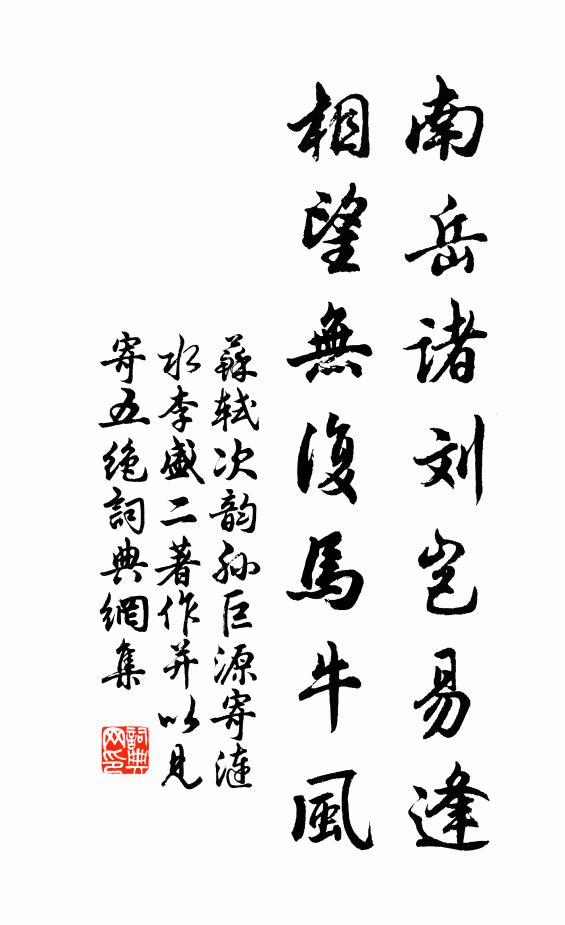 南岳諸刘岂易逢
相望無復馬牛風
蘇軾次韵孫巨源寄漣
水李盛二著作并以見
寄五绝詞典網集
詞典网印